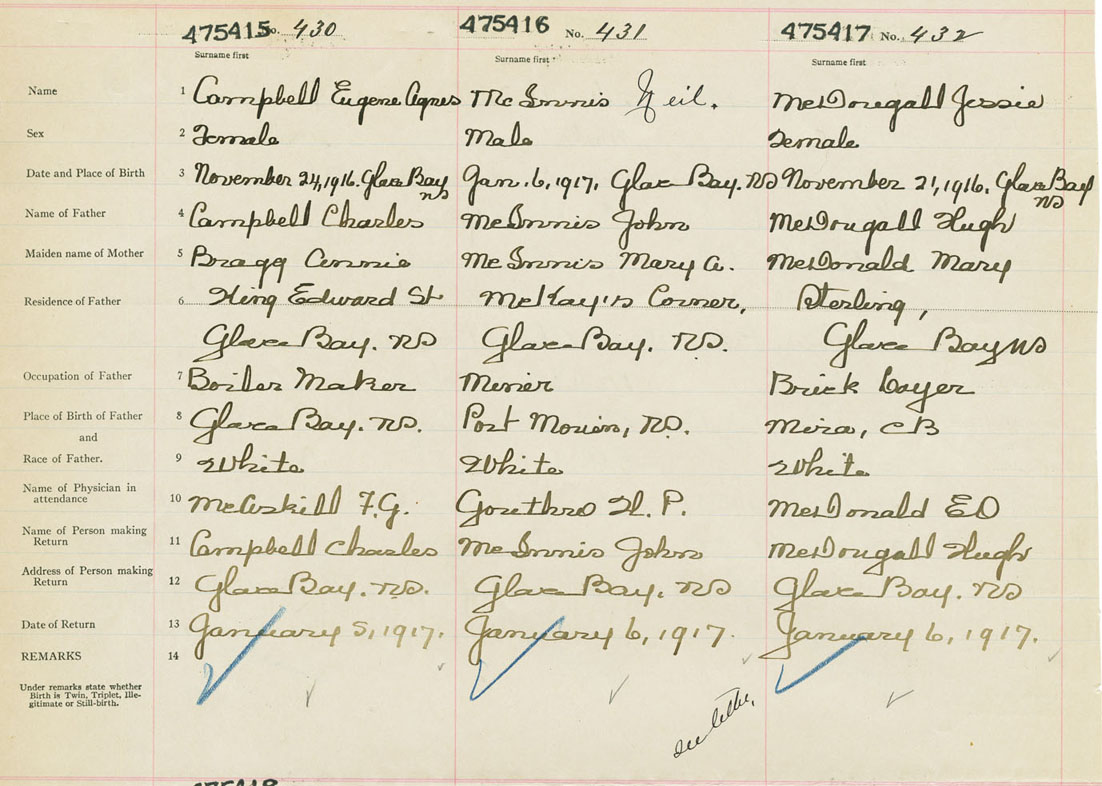 475415 No. 430
475416 No. 431
475417 No. 432
Surname first
Surname first
Surname first
Name 1 Campbell Eugene Agnes McInnis Neil. McDougall Jessie
Sex 2 Female Male Female
Date and Place of Birth 3 November 24, 1916. Glace Bay NS Jan. 6, 1917, Glace Bay. NS November 21, 1916. Glace Bay NS
Name of Father 4 Campbell Charles McInnis John McDougall Hugh
Maiden name of Mother 5 Bragg Annie McInnis Mary A. McDonald Mary
Residence of Father 6 King Edward St McKay's Corner, Sterling,
Glace Bay. NS Glace Bay. NS. Glace Bay NS
Occupation of Father 7 Boiler Maker Minier Brick Layer
Place of Birth of Father 8 Glace Bay. NS. Port Morien, NS. Mira, CB
and
Race of Father. 9 White White White
Name of Physician in
attendance 10 McAskill F.G. Gouthro H. P. McDonald ED
Name of Person making
Return 11 Campbell Charles McInnis John McDougall Hugh
Address of Person making
Return 12 Glace Bay. NS. Glace Bay, NS Glace Bay. NS
Date of Return 13 January 5, 1917. January 6, 1917. January 6, 1917.
REMARKS 14
Under remarks state whether
Birth is Twin, Triplet, Ille-
gitimate or Still-birth.
see letter